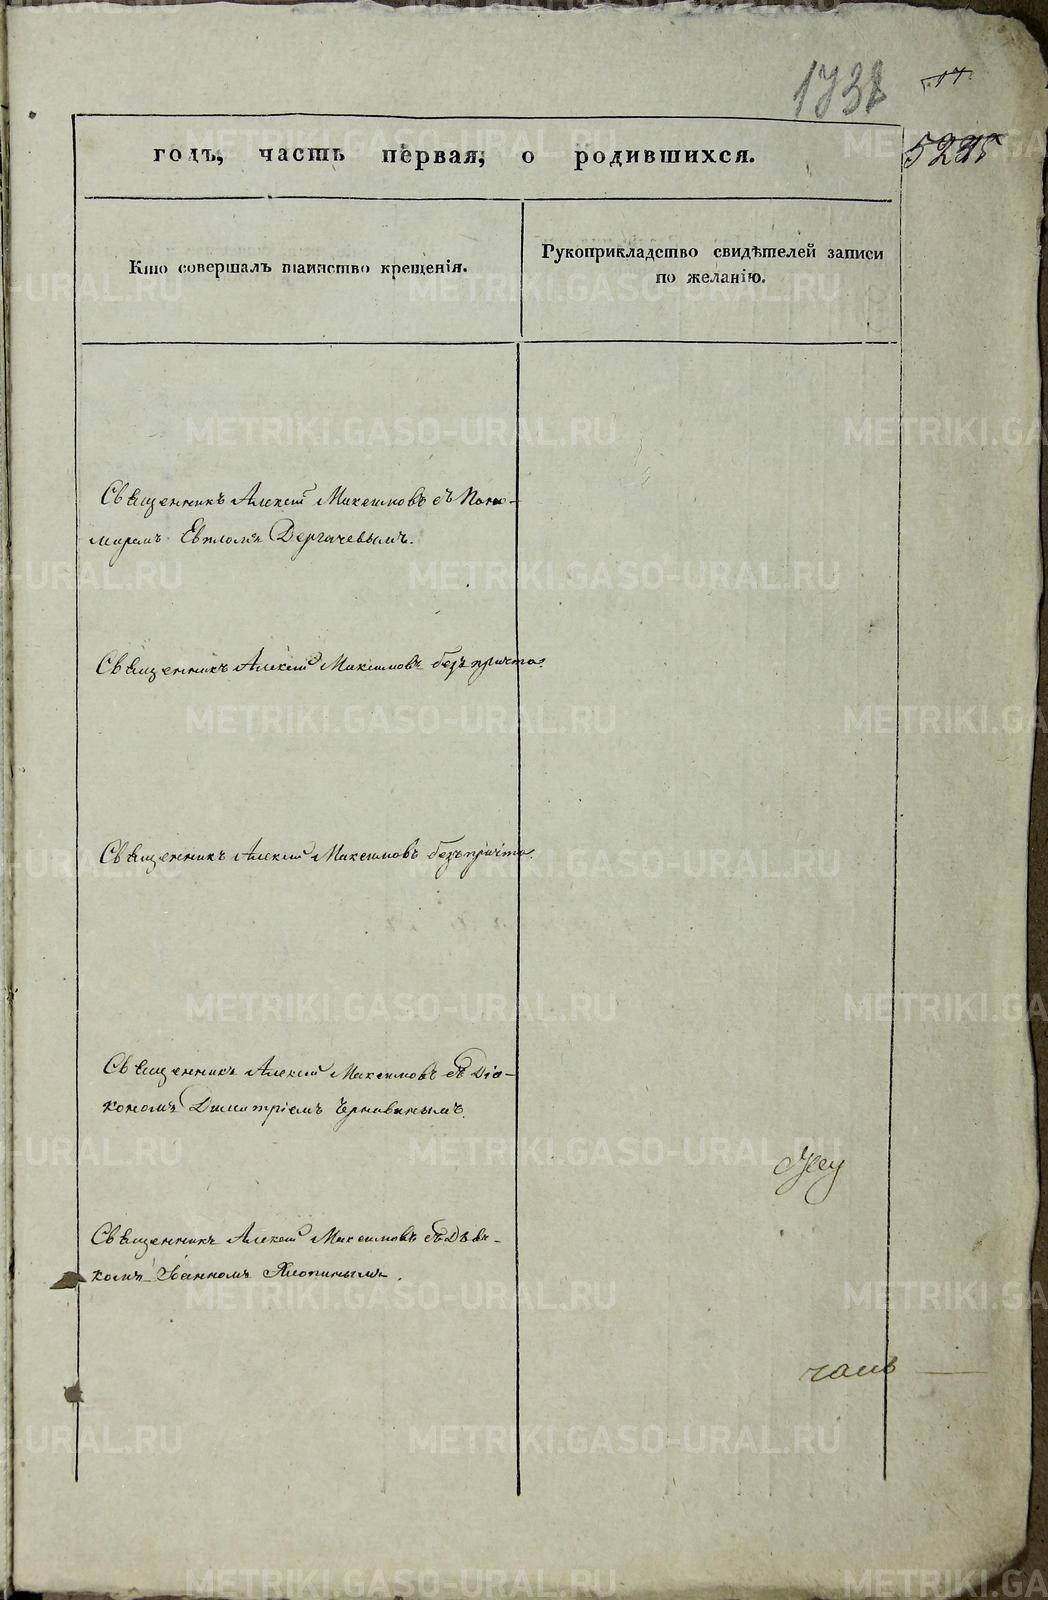 173
17
годъ, часть первая, о родившихся.
Кто совершалъ таинство крещенія.
Рукоприкладство свидѣтелей записи
по желанію.
Священникъ Алексій Максимовъ съ Поно-
маремъ Дергачевымъ.
Священникъ Алексій Максимовъ безъ причта.
Священникъ Алексій Максимовъ безъ причта.
Священникъ Алексій Максимовъ съ Діа-
кономъ Димитріемъ
Священникъ Алексій Максимовъ съ Дьяч-
комъ Іоанномъ
METRIKI.GASO-URAL.RU